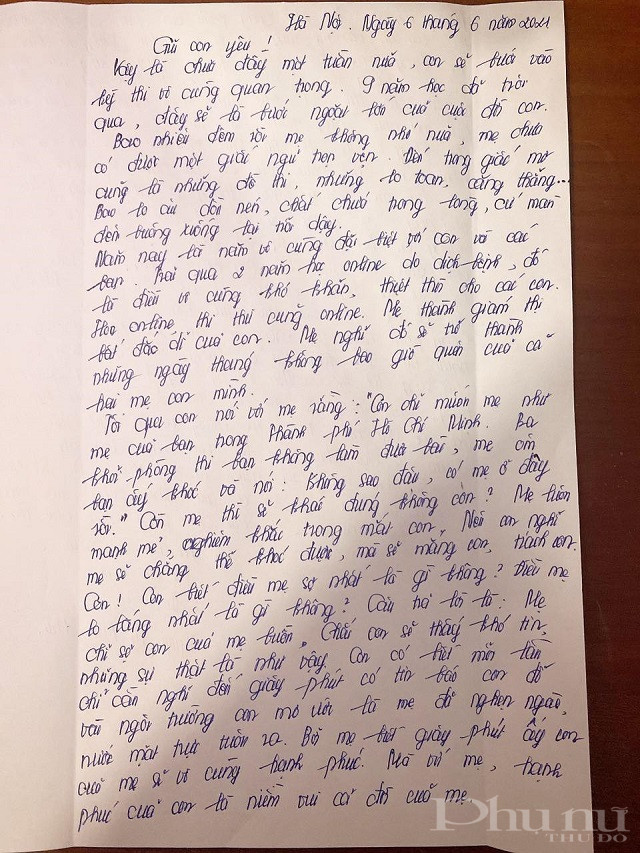 Hà Nội. Ngày 6 tháng 6 năm 2021
Gửi con yêu!
Vậy là chưa đầy một tuần nữa, con sẽ bước vào
kỳ thi vô cùng quan trọng. 9 năm học đã trôi
qua, đây sẽ là bước ngoặt lớn của cuộc đời con.
Bao nhiêu đêm rồi mẹ không nhớ nữa, mẹ chưa
có được một giấc ngủ trọn vẹn. Đến trong giấc mơ
cũng là những đề thi, những lo toan, căng thẳng...
Bao lo âu dồn nén, chất chứa trong lòng, cứ màn
đêm buông xuống lại trỗi dậy.
Năm nay là năm vô cùng đặc biệt với con và các
bạn. Trải qua 2 năm học online do dịch bệnh, đó
là điều vô cùng khó khăn, thiệt thòi cho các con.
Học online, thi thử cũng online. Mẹ thành giám thị
bất đắc dĩ của con. Mẹ nghĩ đó sẽ trở thành
những ngày tháng không bao giờ quên của cả
hai mẹ con mình.
Tối qua con nói với mẹ rằng: "Con chỉ muốn mẹ như
mẹ của bạn trong Thành phố Hồ Chí Minh. Ra
khỏi phòng thi bạn không làm được bài, mẹ ôm
bạn ấy khóc và nói: Không sao đâu, có mẹ ở đây
rồi." Còn mẹ thì sẽ khác đúng không con? Mẹ luôn
mạnh mẽ, nghiêm khắc trong mắt con. Nên con nghĩ
mẹ sẽ chẳng thể khóc được, mà sẽ mắng con, trách con.
Con! Con biết điều mẹ sợ nhất là gì không? Điều mẹ
lo lắng nhất là gì không? Câu trả lời là: Mẹ
chỉ sợ con của mẹ buồn. Chắc con sẽ thấy khó tin,
nhưng sự thật là như vậy. Con có biết mỗi lần
chỉ cần nghĩ đến giây phút có tin báo con đỗ
vào ngôi trường con mơ ước là mẹ đã nghẹn ngào,
nước mắt trực tuôn ra. Bởi mẹ biết giây phút ấy con
của mẹ sẽ vô cùng hạnh phúc. Mà với mẹ, hạnh
phúc của con là niềm vui cả đời của mẹ.
Phụ nữ
THỦ ĐÔ